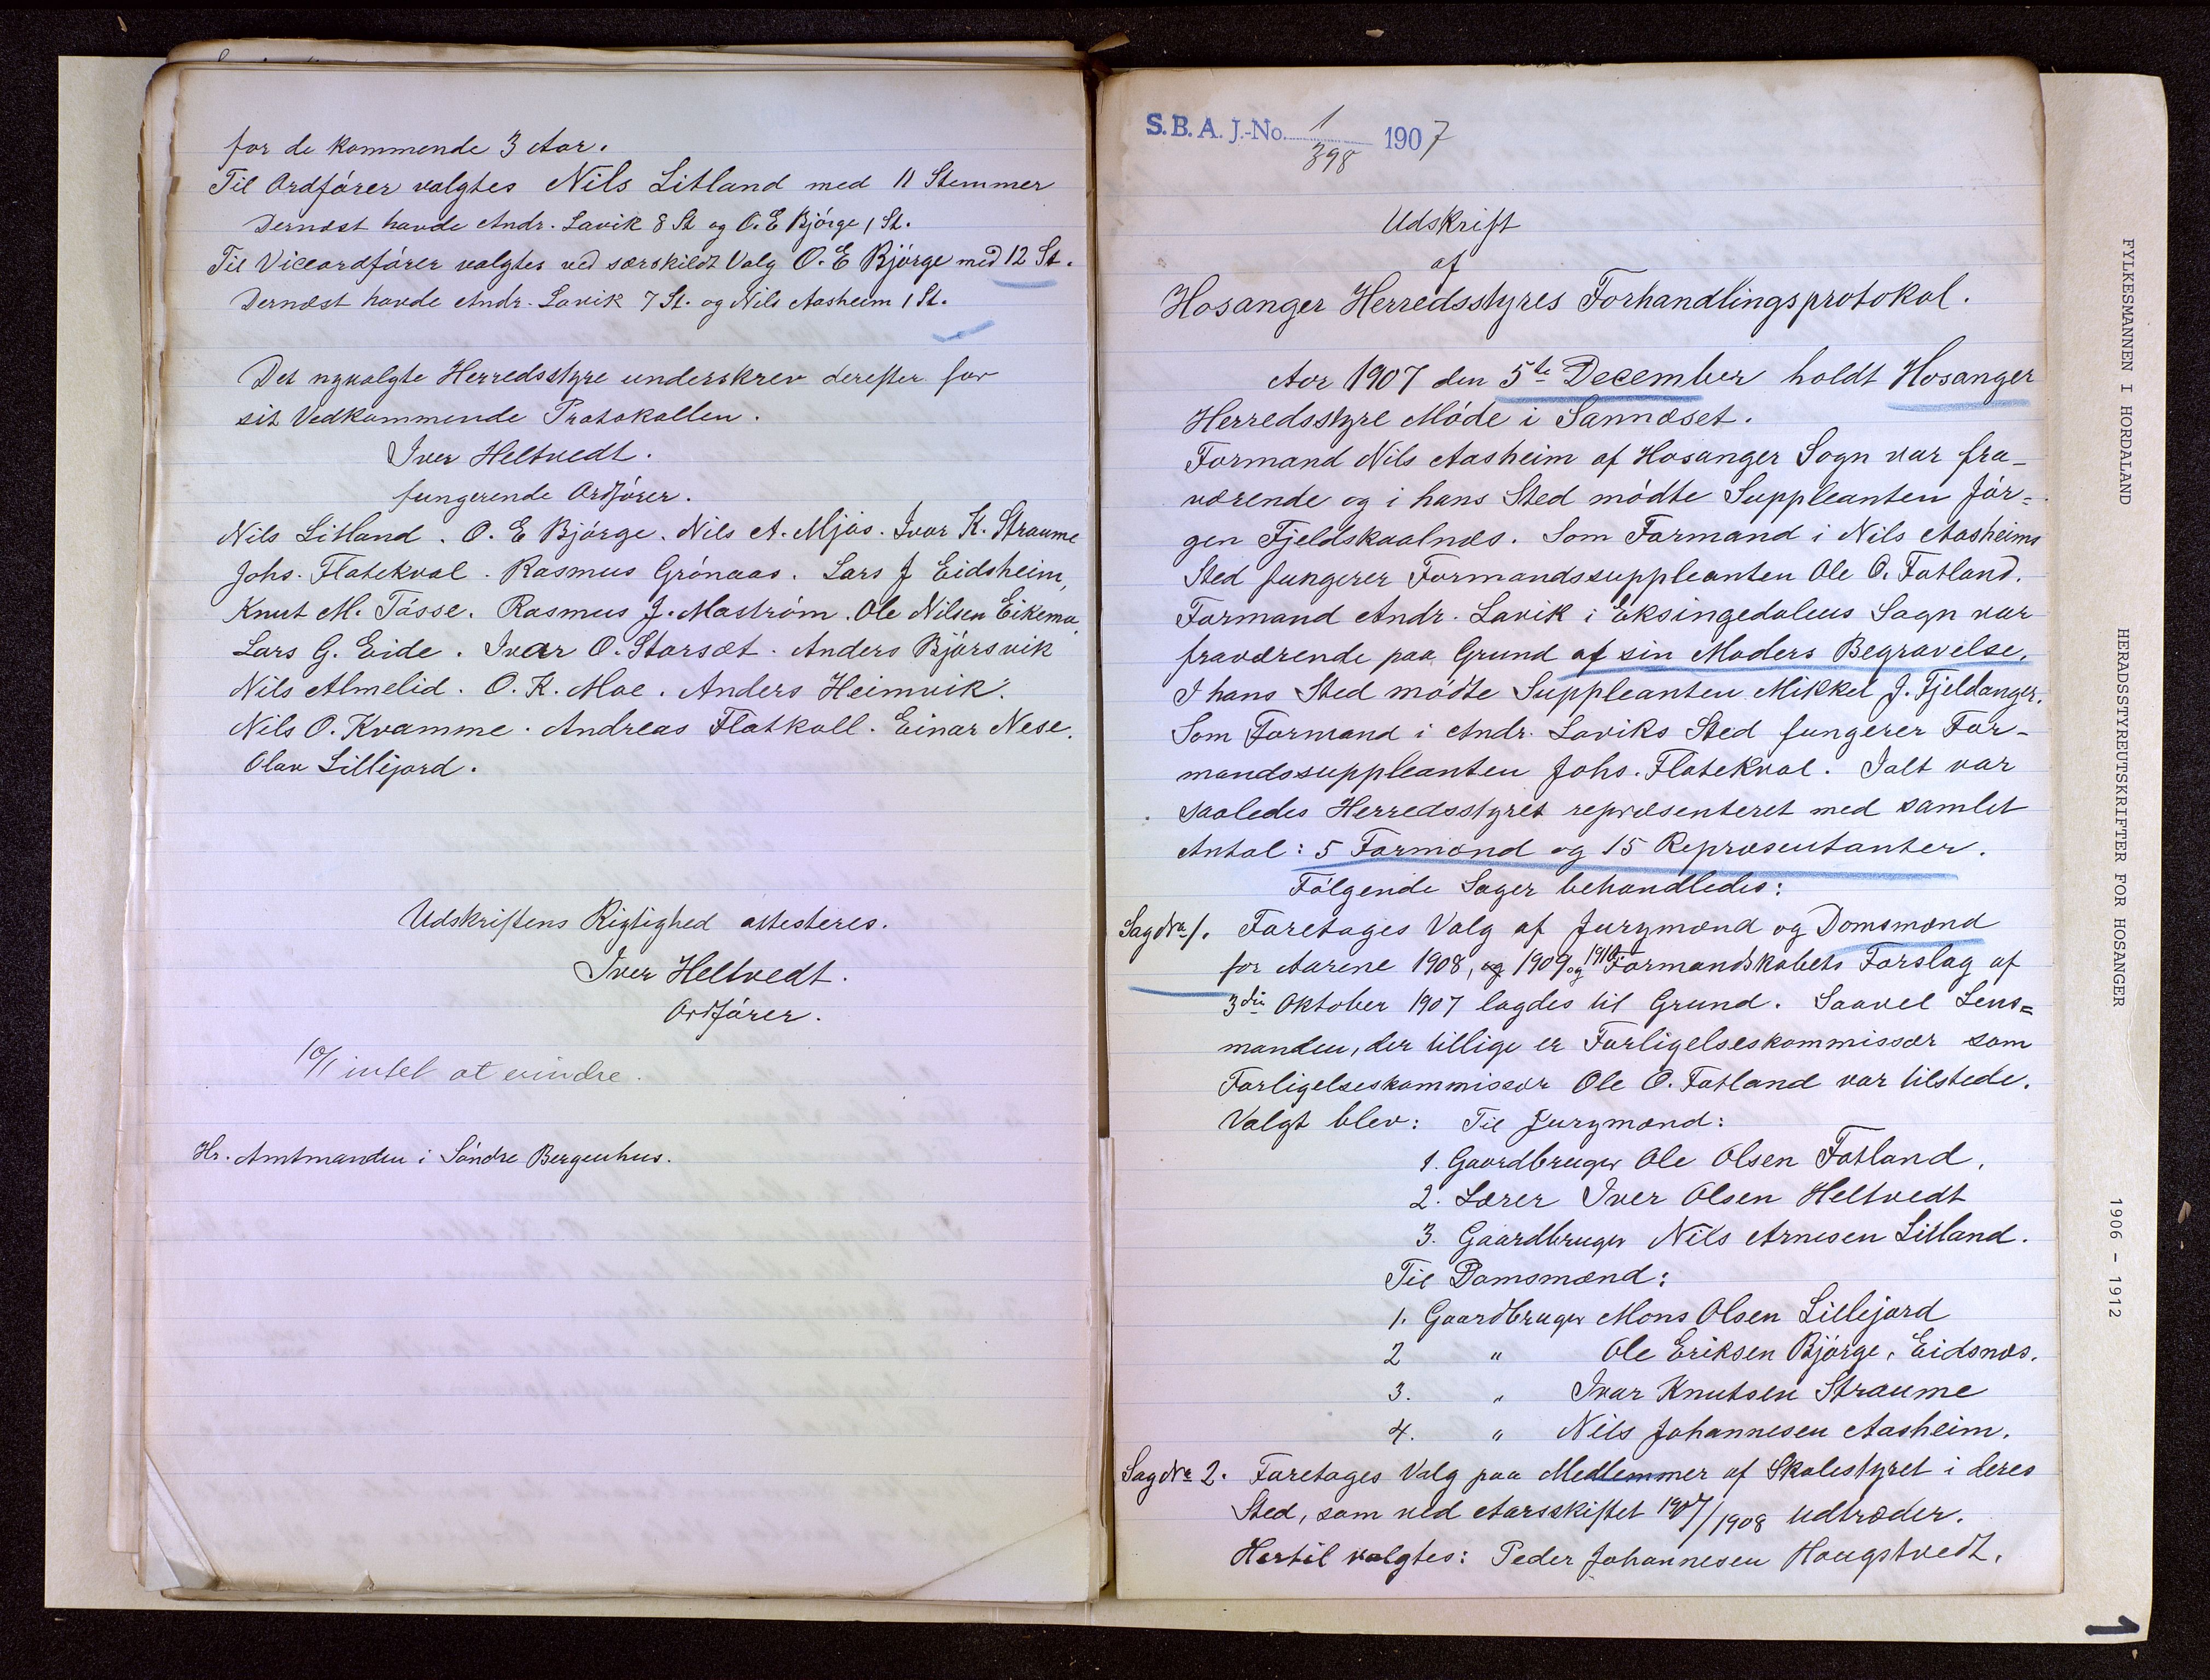 for de kommende 3 Aar.
Til Ordfører valgtes Nils Litland med 11 Stemmer
Dernæst havde Andr. Lavik 8 St og O. E Bjørge 1 St.
Til Viceordfører valgtes ved særskildt Valg O. E Bjørge med 12 St.
Dernæst havde Andr. Lavik 7 St. og Nils Aasheim 1 St.
Det nyvalgte Herredsstyre underskrev derefter for
sit Vedkommende Protokollen.
Iver Heltvedt.
fungerende Ordfører.
Nils Litland. O. E Bjørge. Nils A. Mjøs. Ivar K. Straume
Johs. Flatekval. Rasmus Grønaas. Lars J Eidsheim,
Knut M. Tøsse. Rasmus J. Mostrøm. Ole Nilsen Eikemo,
Lars G. Eide. Ivar O. Storsæt. Anders Bjørsvik
Nils Almelid. O. K. Moe. Anders Heimvik.
Nils O. Kvamme. Andreas Flatkvall. Einar Nese.
Olav Lillejord.
Udskriftens Rigtighed attesteres.
Iver Heltvedt.
Ordfører.
10/1 intet at erindre.
Hr. Amtmanden i Søndre Bergenhus.
S. B. A. J.-No. 1/398 1907
Udskrift
af
Hosanger Herredsstyres Forhandlingsprotokol.
Aar 1907 den 5te December holdt Hosanger
Herredsstyre Møde i Sannæset.
Formand Nils Aasheim af Hosanger Sogn var fra-
værende og i hans Sted mødte Suppleanten Jør=
gen Fjeldskaalnæs. Som Formand i Nils Aasheims
Sted fungerer Formandssuppleanten Ole O. Fatland.
Formand Andr. Lavik i Eksingedalens Sogn var
fraværende paa Grund af sin Moders Begravelse.
I hans Sted mødte Suppleanten Mikkel J. Fjeldanger.
Som Formand i Andr. Laviks Sted fungerer For-
mandssuppleanten Johs. Flatekval. Ialt var
saaledes Herredsstyret repræsenteret med samlet
Antal: 5 Formænd og 15 Repræsentanter.
Følgende Sager behandledes:
Sag No 1. Foretages Valg af Jurymænd og Domsmænd
for Aarene 1908, og 1909 og 1910. Formandskabets Forslag af
3die Oktober 1907 lagdes til Grund. Saavel Lens=
manden, der tillige er Forligelseskommissær som
Forligelseskommissær Ole O. Fatland var tilstede.
Valgt blev: Til Jurymænd:
1. Gaardbruger Ole Olsen Fatland.
2. Lærer Iver Olsen Heltvedt
3. Gaardbruger Nils Arnesen Litland.
Til Domsmænd:
1. Gaardbruger Mons Olsen Lillejord
2 " Ole Eriksen Bjørge, Eidsnæs.
3. " Ivar Knutsen Straume
4. " Nils Johannesen Aasheim.
Sag No 2. Foretages Valg paa Medlemmer af Skolestyret i deres
Sted, som ved Aarsskiftet 1907/1908 udtræder.
Hertil valgtes: Peder Johannesen Hougstvedt.
FYLKESMANNEN I HORDALAND HERADSSTYREUTSKRIFTER FOR HOSANGER 1906 - 1912
1